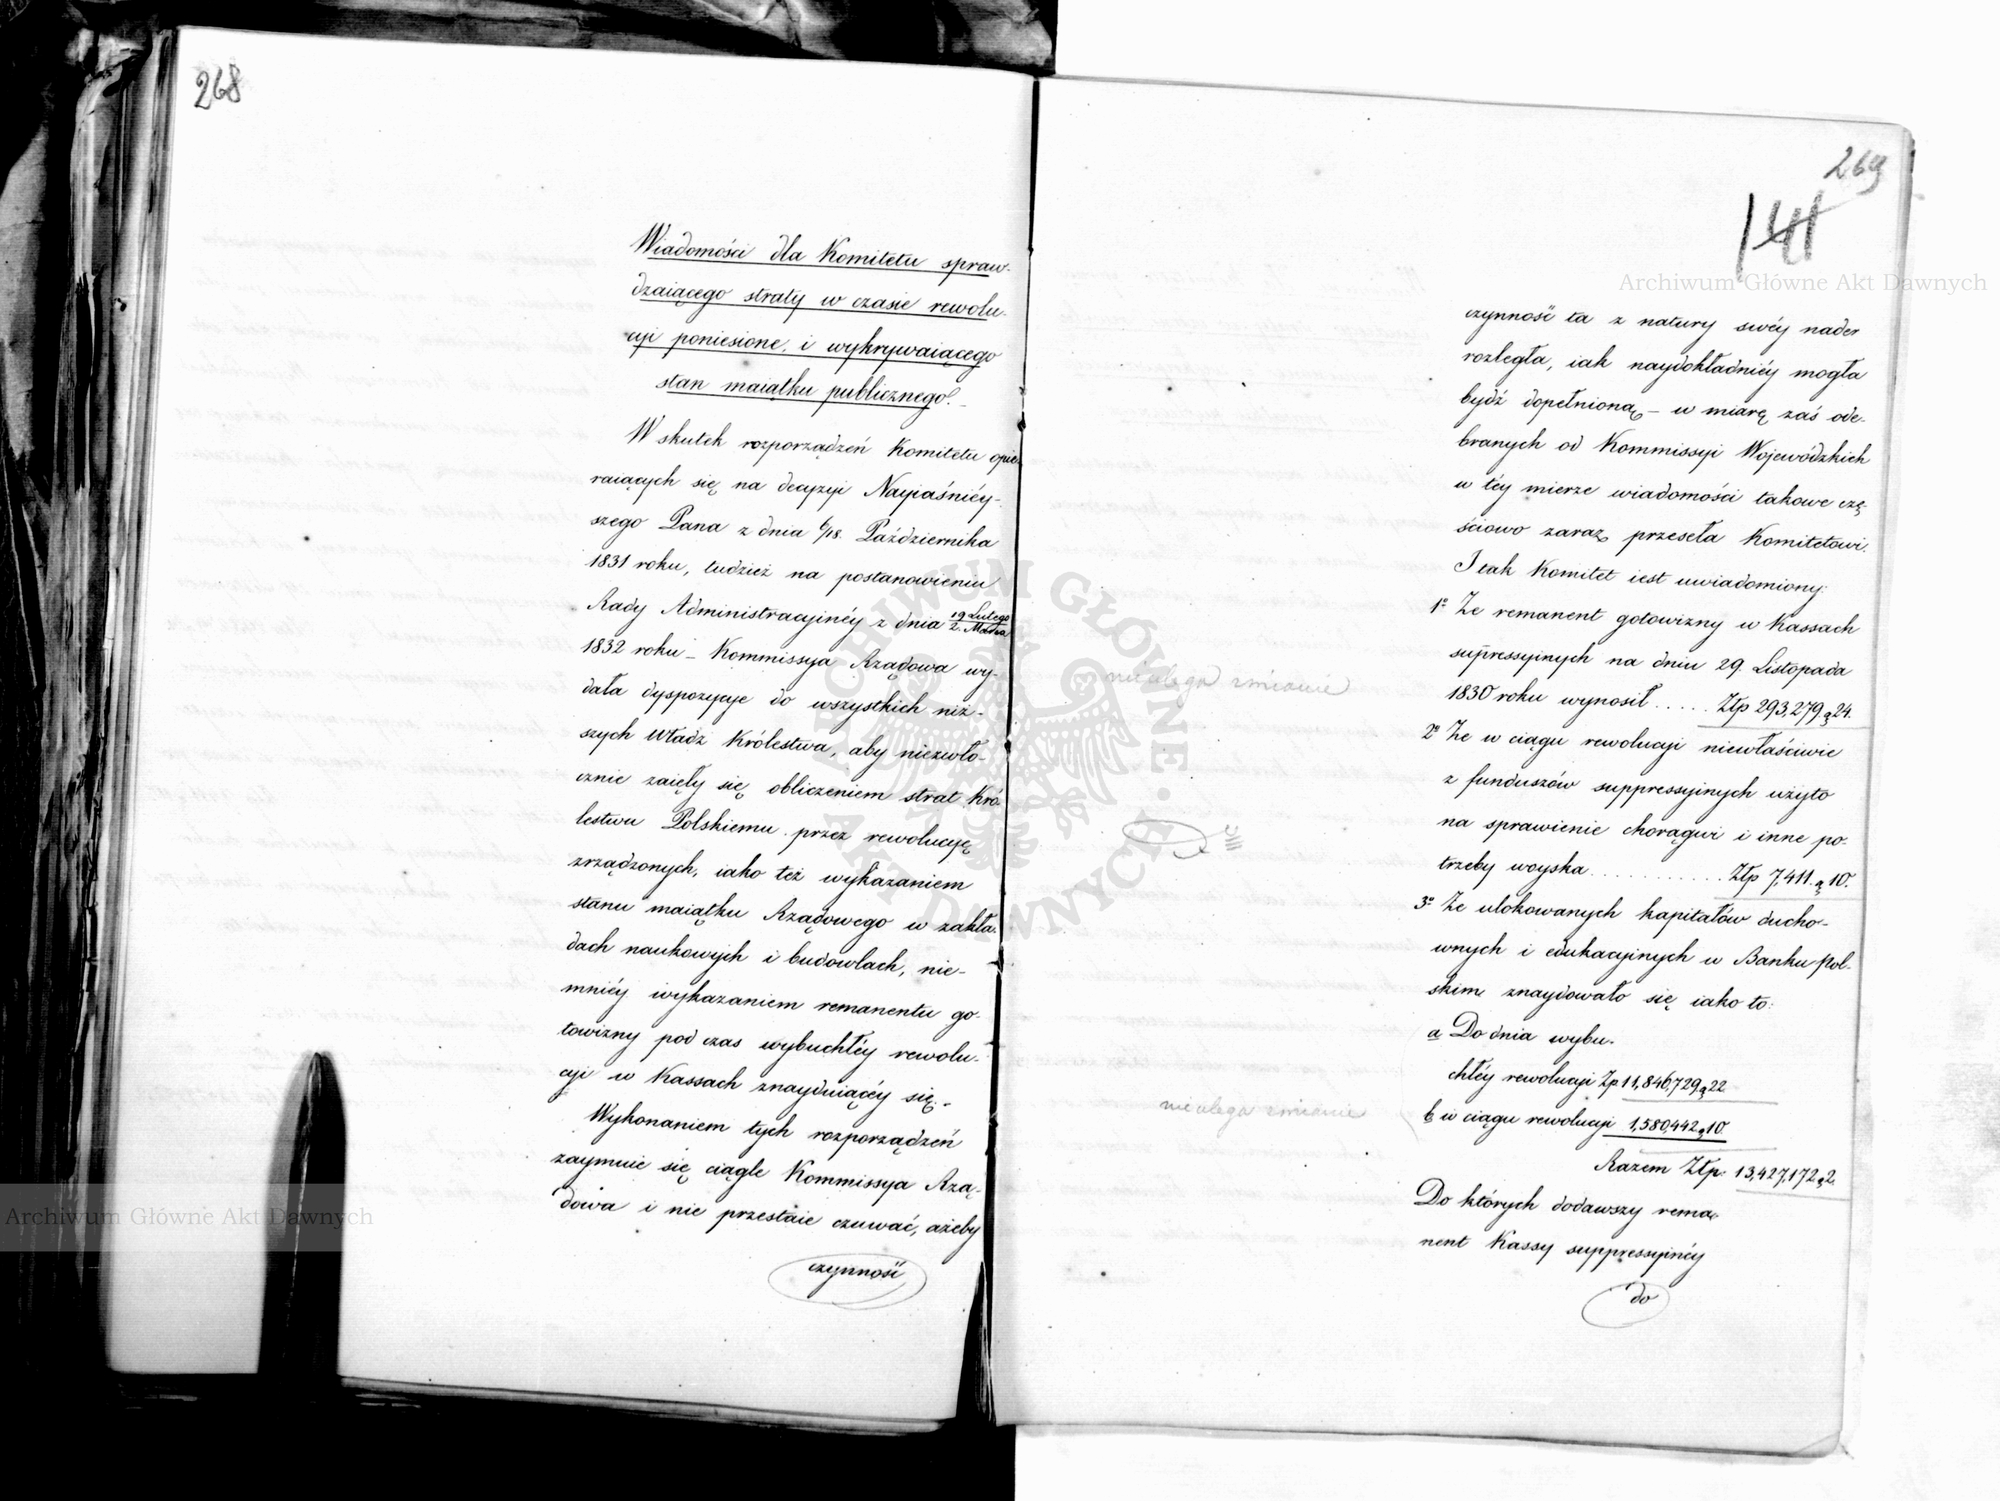 268
Wiadomości dla Komitetu spraw-
dzaiącego straty w czasie rewolu-
cyi poniesione, i wykrywaiącego
stan maiątku publicznego.
W skutek rozporządzeń Komitetu opie-
raiących się na decyzyi Nayiaśniéy-
szego Pana z dnia 6/18. Października
1831 roku, tudzież na postanowieniu
Rady Administracyinéy z dnia 19 Lutego / 2. Marca
1832 roku – Kommissya Rządowa wy-
dała dyspozycye do wszystkich niż-
szych Władz Królestwa, aby niezwło-
cznie zaięły się obliczeniem strat Kró-
lestwu Polskiemu przez rewolucyę
zrządzonych, iako też wykazaniem
stanu maiątku Rządowego w zakła-
dach naukowych i budowlach, nie-
mniéy wykazaniem remanentu go-
towizny podczas wybuchłéy rewolu-
cyi w Kassach znayduiącéy się.-
Wykonaniem tych rozporządzeń
zaymuie się ciągle Kommissya Rzą-
dowa i nie przestaie czuwać, ażeby
czynność
269
141
Archiwum Główne Akt Dawnych
czynność ta z natury swéy nader
rozległa, iak naydokładniéy mogła
bydź dopełnioną – w miarę zaś ode-
branych od Kommissyi Wojewódzkich
w téy mierze wiadomości takowe czę-
ściowo zaraz przeseła Komitetowi.
I tak Komitet iest uwiadomiony:
1º Że remanent gotowizny w Kassach
supressyinych na dniu 29. Listopada
1830 roku wynosił ..... Złp 293,279 g 24.
nieulega zmianie
2º Że w ciągu rewolucyi niewłaściwie
z funduszów suppressyinych użyto
na sprawienie chorągwi i inne po-
trzeby woyska ........... Złp 7,411. g 10.
3º Że ulokowanych kapitałów ducho-
wnych i edukacyinych w Banku Pol-
skim znaydowało się iako to:
a Do dnia wybu-
chłéy rewolucyi Zp 11,846,729 g 22
b w ciągu rewolucyi 1,580,442 g 10
nieulega zmianie
Razem Złp. 13,427,172 g 2.
Do których dodawszy rema-
nent Kassy suppressyinéy
do
Archiwum Główne Akt Dawnych
ARCHIWUM GŁÓWNE AKT DAWNYCH